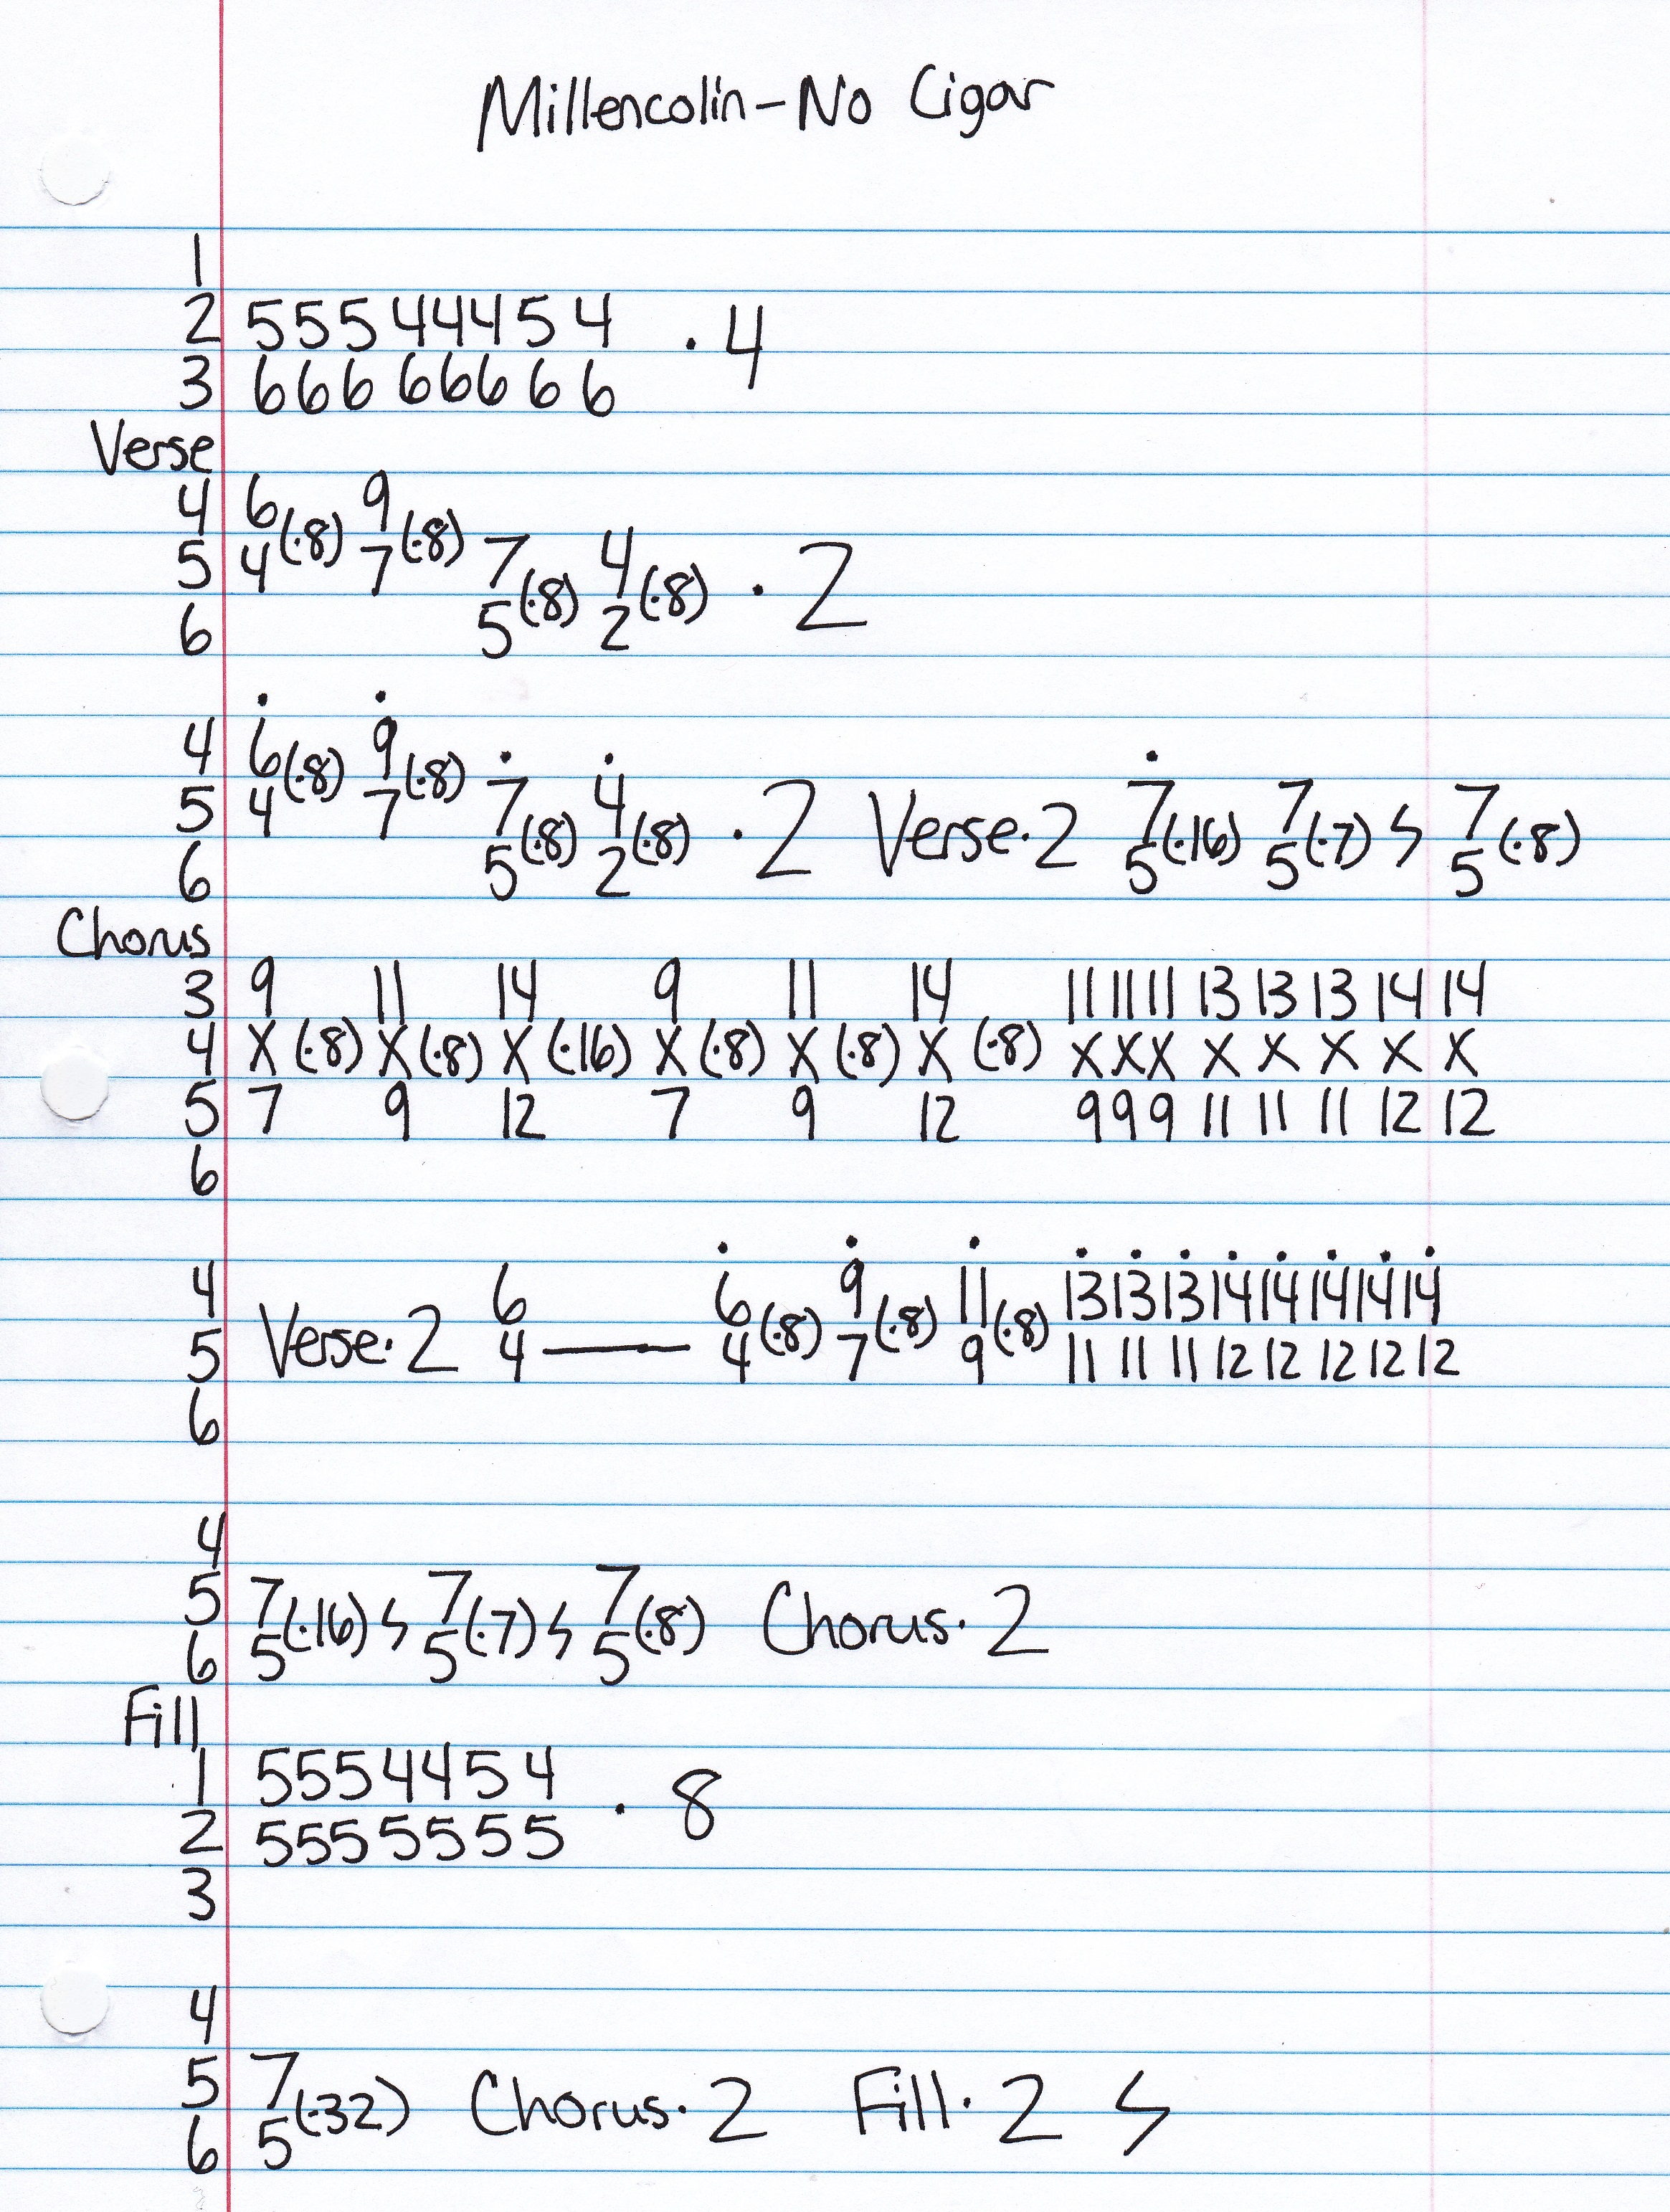 Millencolin-No Cigar
1
2 5 5 5 4 4 4 5 4 · 4
3 6 6 6 6 6 6 6 6
Verse
4 6 (·8) 9 (·8)
5 4 7 7 (·8) 4 (·8) · 2
6 5 2
4 6 (·8) 9 (·8)
5 4 7 7 (·8) 4 (·8) · 2 Verse · 2 7 (·16) 7 (·7) ϟ 7 (·8)
6 5 2 5 5 5
Chorus
3 9 11 14 9 11 14 11 11 11 13 13 13 14 14
4 X (·8) X (·8) X (·16) X (·8) X (·8) X (·8) X X X X X X X X
5 7 9 12 7 9 12 9 9 9 11 11 11 12 12
6
4 6 6 (·8) 9 (·8) 11 (·8) 13 13 13 14 14 14 14 14
5 Verse · 2 4 — 4 7 9 11 11 11 12 12 12 12 12
6
4
5 7 (·16) ϟ 7 (·7) ϟ 7 (·8) Chorus · 2
6 5 5 5
Fill
1 5 5 5 4 4 5 4 · 8
2 5 5 5 5 5 5 5
3
4
5 7 (·32) Chorus · 2 Fill · 2 ϟ
6 5